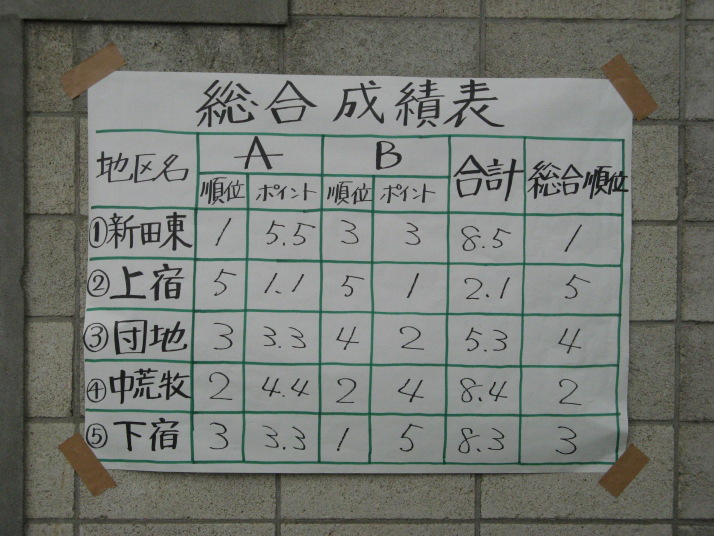 総合成績表
地区名 A B 合計 総合順位
順位 ポイント 順位 ポイント
①新田東 1 5.5 3 3 8.5 1
②上宿 5 1.1 5 1 2.1 5
③団地 3 3.3 4 2 5.3 4
④中荒牧 2 4.4 2 4 8.4 2
⑤下宿 3 3.3 1 5 8.3 3